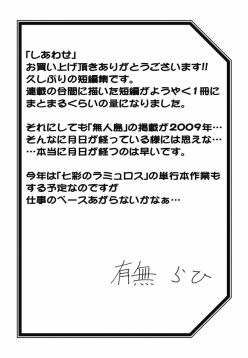 「しあわせ」
お買い上げ頂きありがとうございます!!
久しぶりの短編集です。
連載の合間に描いた短編がようやく1冊に
まとまるくらいの量になりました。
それにしても「無人島」の掲載が2009年…
そんなに月日が経っている様には思えな…
…本当に月日が経つのは早いです。
今年は「七彩のラミュロス」の単行本作業も
する予定なのですが
仕事のペースあがらないかなぁ…
有無 らひ